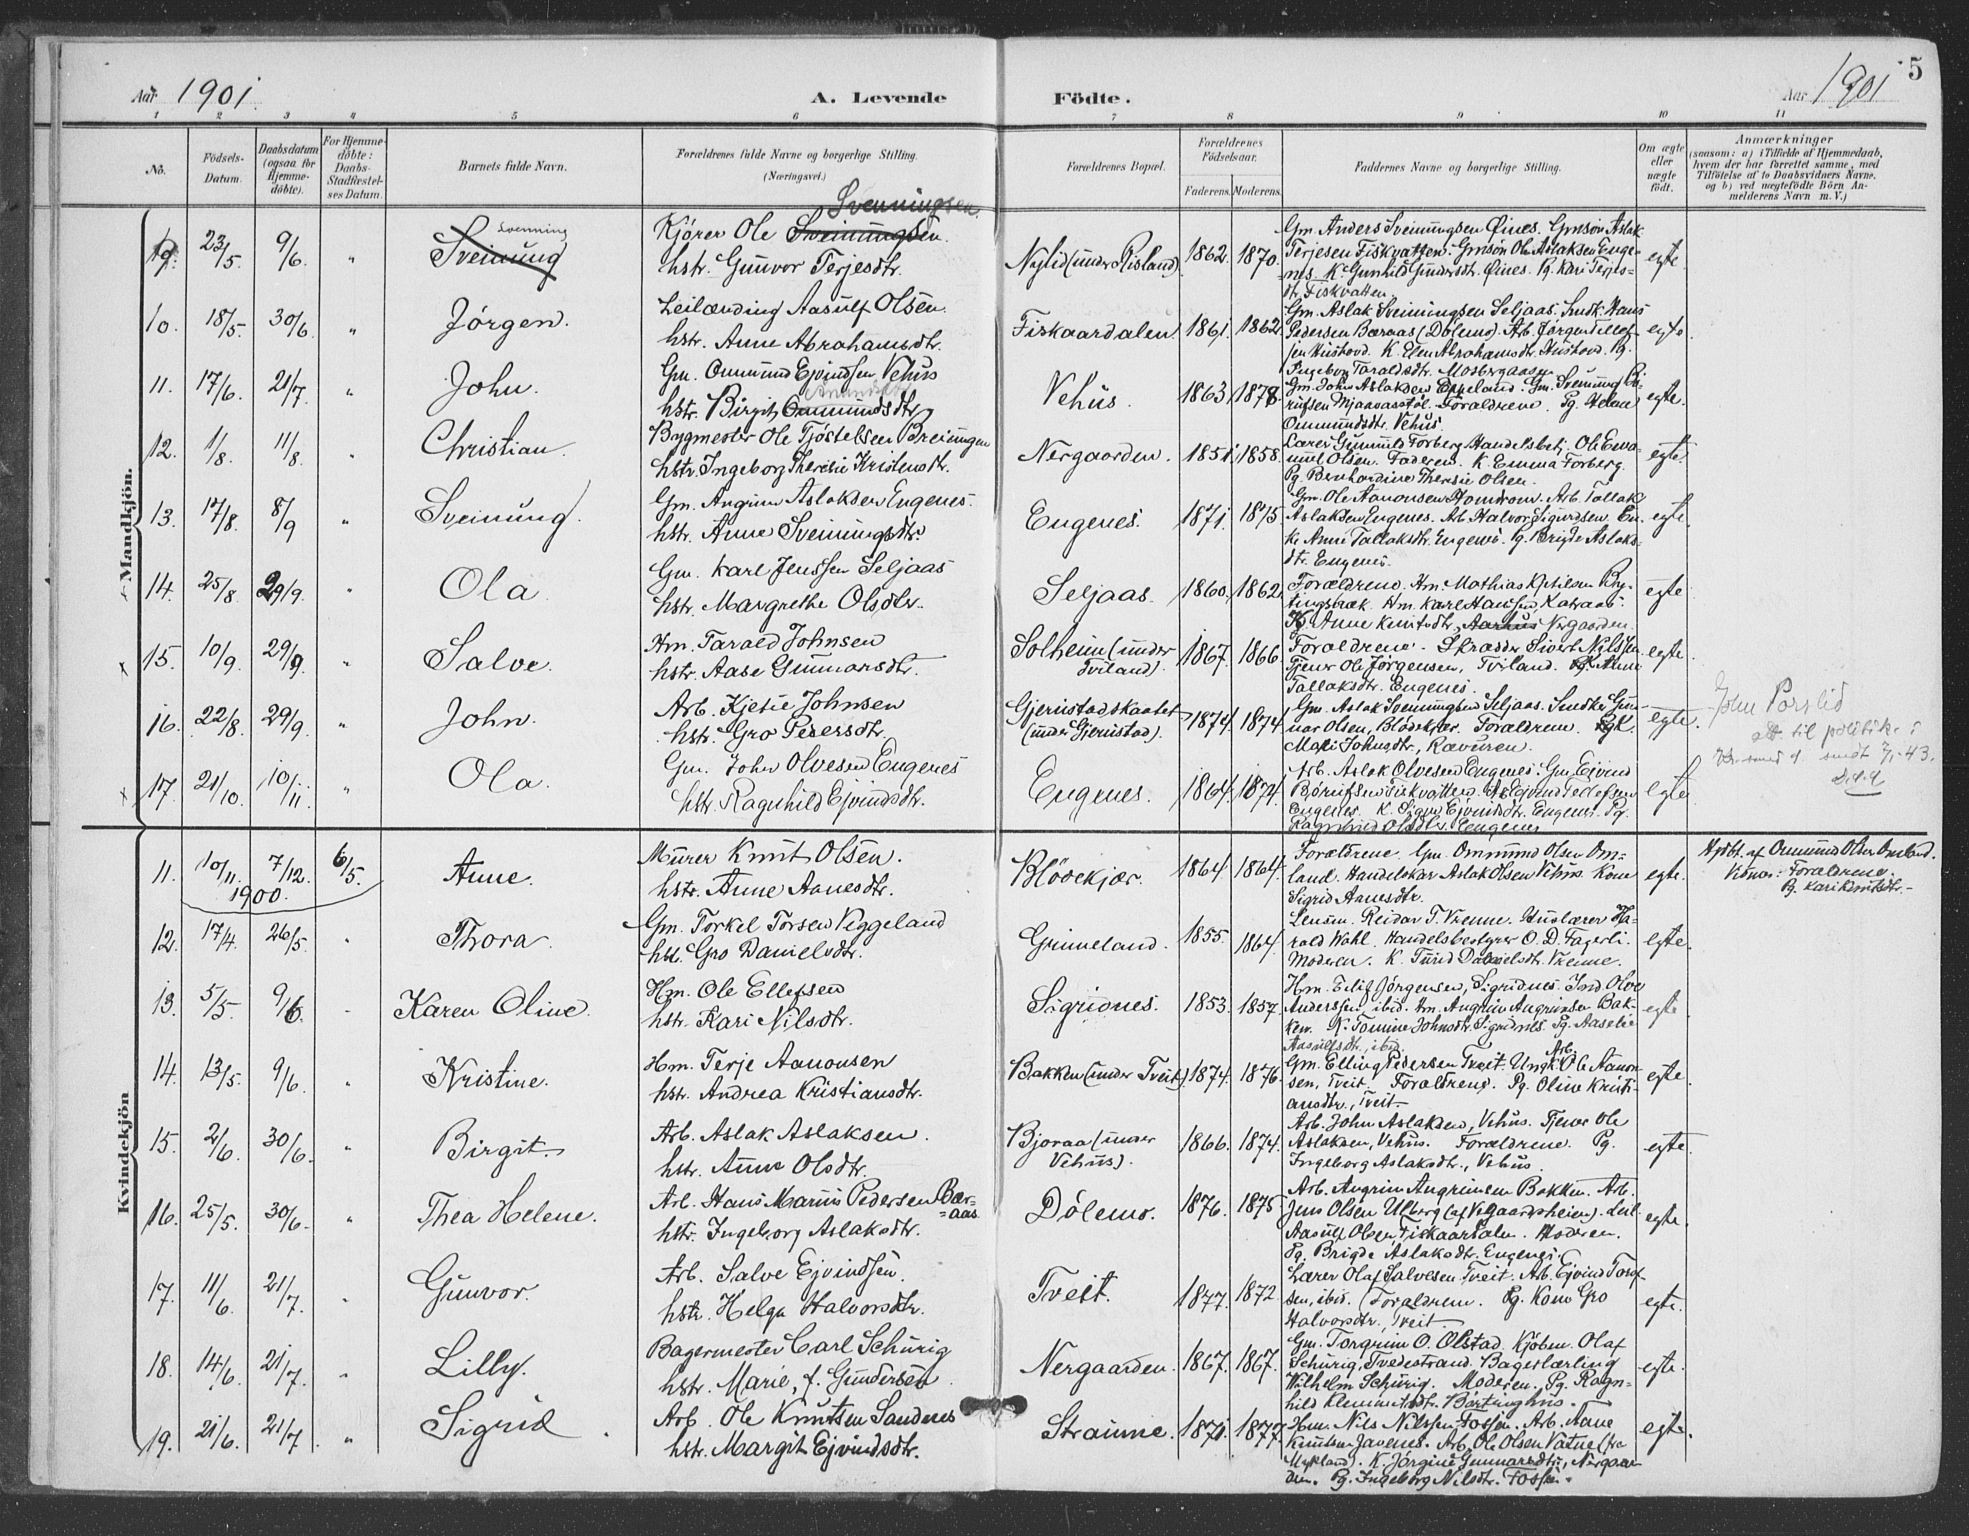 Aar 1901. A. Levende Födte. Aar 1901 5
1 2 3 4 5 6 7 8 9 10 11
No. Födsels-Datum. Daabsdatum (ogsaa for Hjemmedöbte). For Hjemmedöbte: Daabs-Stadfæstelses Datum. Barnets fulde Navn. Forældrenes fulde Navne og borgerlige Stilling. (Næringsvei.) Forældrenes Bopæl. Forældrenes Födselsaar. Faderens. Moderens. Faddernes Navne og borgerlige Stilling. Om ægte eller uægte födt. Anmærkninger (saasom: a) i Tilfælde af Hjemmedaab, hvem der har forrettet samme, med Tilföielse af to Daabsvidners Navne, og b) ved uægtefödte Börn Anmelderens Navn m. V.)
Mandkjön.
9. 23/5 9/6. " Sveinung Svenning Kjörer Ole Sveinungsen Svenningsen.
hstr. Gunvor Terjesdtr. Nylid (under Risland) 1862. 1870. egte.
Gm. Anders Sveinungsen Øines. Gmsön Aslak
Terjesen Fiskvatten. Gmsön Ole Aslaksen Enge-
nes. K. Gunhild Gundersdt. Øines. Pg. Kari Terjes-
dtr. Fiskvatten
10. 18/5 30/6. " Jörgen. Leilænding Aasulf Olsen.
hstr. Anne Abrahamsdtr. Fiskaardalen 1861. 1862. egte
Gm. Aslak Sveinungsen Seljaas. Hans
Pedersen Bæraas (Dölemo). Arb. Jörgen
K. Elen Abrahamsdtr. Hustovd. Pg.
Ingeborg Taraldsdtr. Mosbergaasen
11. 17/6. 21/7. " John. Gm. Ommund Ejvindsen Vehus
hstr. Birgit Ommundsdtr. Vehus. 1863. 1878. egte.
Gm. John Aslaksen Espeland. Gm. Sveinung
Mjaavasstöl. Forældrene. Pg. Helene
Ommundsdtr. Vehus.
12. 1/8. 11/8. " Christian. Bygmester Ole Tjöstelsen Breiungen
hstr. Ingeborg Theresie Kristensdtr. Nergaarden. 1851. 1858. egte.
Lærer Gunnuld Forberg. Handelsbetj. Ole Ema-
nuel Olsen. Faderen. K. Emma Forberg.
Pg. Bernhardine Theresie Olsen.
13. 17/8. 8/9 " Sveinung. Gm. Angrim Aslaksen Eugenes.
hstr. Anne Sveinungsdtr. Eugenes. 1871. 1875 egte.
Gm. Ole Aanonsen Homdrom. Arb. Tallak
Aslaksen Eugenes. Arb. Halvor Sigurdsen. En-
ke Anne Tallaksdtr. Eugenes. Pg. Brigde Aslaks-
dtr. Eugenes.
14. 25/8. 29/9. " Ola. Gm. Karl Jenssen Seljaas
hstr. Margrethe Olsdtr. Seljaas. 1860. 1862. egte
Forældrene. Hm. Mathias Kjetilsen Byg-
tingsbæk. Hm. Karl Hansen, Katraas.
K. Anne Knutsdtr. Aarhus Nergaarden.
15. 10/9. 29/9. " Salve. Hm. Tarald Johnsen
hstr. Aase Gunnarsdtr. Solheim (under Tviland). 1867. 1866. egte.
Forældrene. Skrædder Sivert Nilssen.
Tjener Ole Jörgensen, Tviland. Pg. Anne
Tallaksdtr. Eugenes.
16. 22/8. 29/9. " John. Arb. Kjetil Johnsen
hstr. Gro Pedersdtr. Gjerustadskaatet (under Gjerustad). 1874. 1874. egte.
Gm. Aslak Sveinungsen Seljaas. Smdkr. Gun-
nar Olsen, Blödekjær. Forældrene. K.
Mari Johnsdtr., Rævuren.
John Porslid
til politik i
smdt 7/1-43.
17. 21/10. 10/11. " Ola. Gm. John Olvesen Eugenes
hstr. Ragnhild Ejvindsdtr. Eugenes. 1864. 1874. egte
Arb. Aslak Olvesen Eugenes. Gm. Ejvind
Fiskvatten. Arb. Ejvind Tellefsen
Eugenes. K. Sigrid Ejvindsdtr. Eugenes. Pg.
Ragnhild Olsdtr. Eugenes
Kvindekjön
11. 10/11. 1900. 7/12. 6/5. Anne. Murer Knut Olsen.
hstr. Anne Aanesdtr. Blödekjær. 1864 1864. egte.
Forældrene. Gm. Ommund Olsen Om-
land. Handelskar Aslak Olsen Vehus. Kone
Sigrid Aanesdtr.
Hjdbt. af Ommund Olsen Omland.
Vidner: Forældrene.
Pg. Kari Knutsdtr.
12. 17/4. 26/5. " Thora. Gm. Torkel Torsen Veggeland
hstr. Gro Danielsdtr. Grimeland. 1855. 1864. egte.
Lensm. Reidar T. Vrenne. Huslærer Ha-
rald Wahl. Handelsbestyrer O. D. Fagerli.
Moderen. K. Turid Danielsdtr. Vrenne.
13. 5/5. 9/6. " Karen Oline. Hm. Ole Ellefsen
hstr. Kari Nilsdtr. Sigridnes. 1853. 1857. egte
Hm. Eilif Jörgensen, Sigridnes. Ind. Olve
Anderssen, ibid. Hm. Angrim Angrimsen Bak-
ken. K. Tomine Johnsdtr. Sigridnes. Pg. Aaselie
Aasulfsdtr., ibid.
14. 13/5. 9/6. " Kristine. Hm. Terje Aanonsen
hstr. Andrea Kristiansdtr. Bakken (under Tveit) 1874. 1876. egte.
Gm. Elling Pedersen Tveit. Ungk. Arb. Ole Aanon-
sen, Tveit. Forældrene. Pg. Oline Kristi-
ansdtr., Tveit.
15. 2/6. 30/6. " Birgit. Arb. Aslak Aslaksen.
hstr. Anne Olsdtr. Bjoraa (under Vehus). 1866. 1874. egte.
Arb. John Aslaksen, Vehus. Tjener Ole
Aslaksen, Vehus. Forældrene. Pg.
Ingeborg Aslaksdtr., Vehus.
16. 25/5. 30/6. " Thea Helene. Arb. Hans Marius Pedersen Bær-
=aas
hstr. Ingeborg Aslaksdtr. Dölemo. 1876. 1875 egte.
Arb. Angrim Angrimsen Bakken. Arb.
Jens Olsen Ulberg (af Vegaardsheien). Leil.
Aasulf Olsen Fiskaardalen. Moderen.
Pg. Brigde Aslaksdtr. Eugenes.
17. 11/6. 21/7. " Gunvor. Arb. Salve Ejvindsen.
hstr. Helga Halvorsdtr. Tveit. 1877. 1872. egte.
Lærer Olaf Salvesen Tveit. Arb. Ejvind Torjs-
sen, ibid. Forældrene. Pg. Kone Gro
Halvorsdtr., Tveit.
18. 14/6. 21/7. " Lilly. Bagermester Carl Schürig
hstr. Marie, f. Gundersen. Nergaarden. 1867. 1867. egte.
Gm. Torgrim O. Ølstad. Kjöbm. Olaf
Schürig, Tvedestrand. Bagerlærling
Wilhelm Schürig. Moderen. Pg. Ragn-
hild Klemmetsdtr.
19. 21/6. 21/7. " Sigrid. Arb. Ole Knutsen Sandnes
hstr. Margit Ejvindsdtr. Straume. 1871. 1877. egte.
Hm. Nils Nilssen Fossen. Arb. Tane
Knutsen Javenes. Arb. Ole Olsen Vatne (fra
Mykland). K. Jörgine Gunnarsdtr., Nergaar-
den. Pg. Ingeborg Nilsdtr. Fossen.